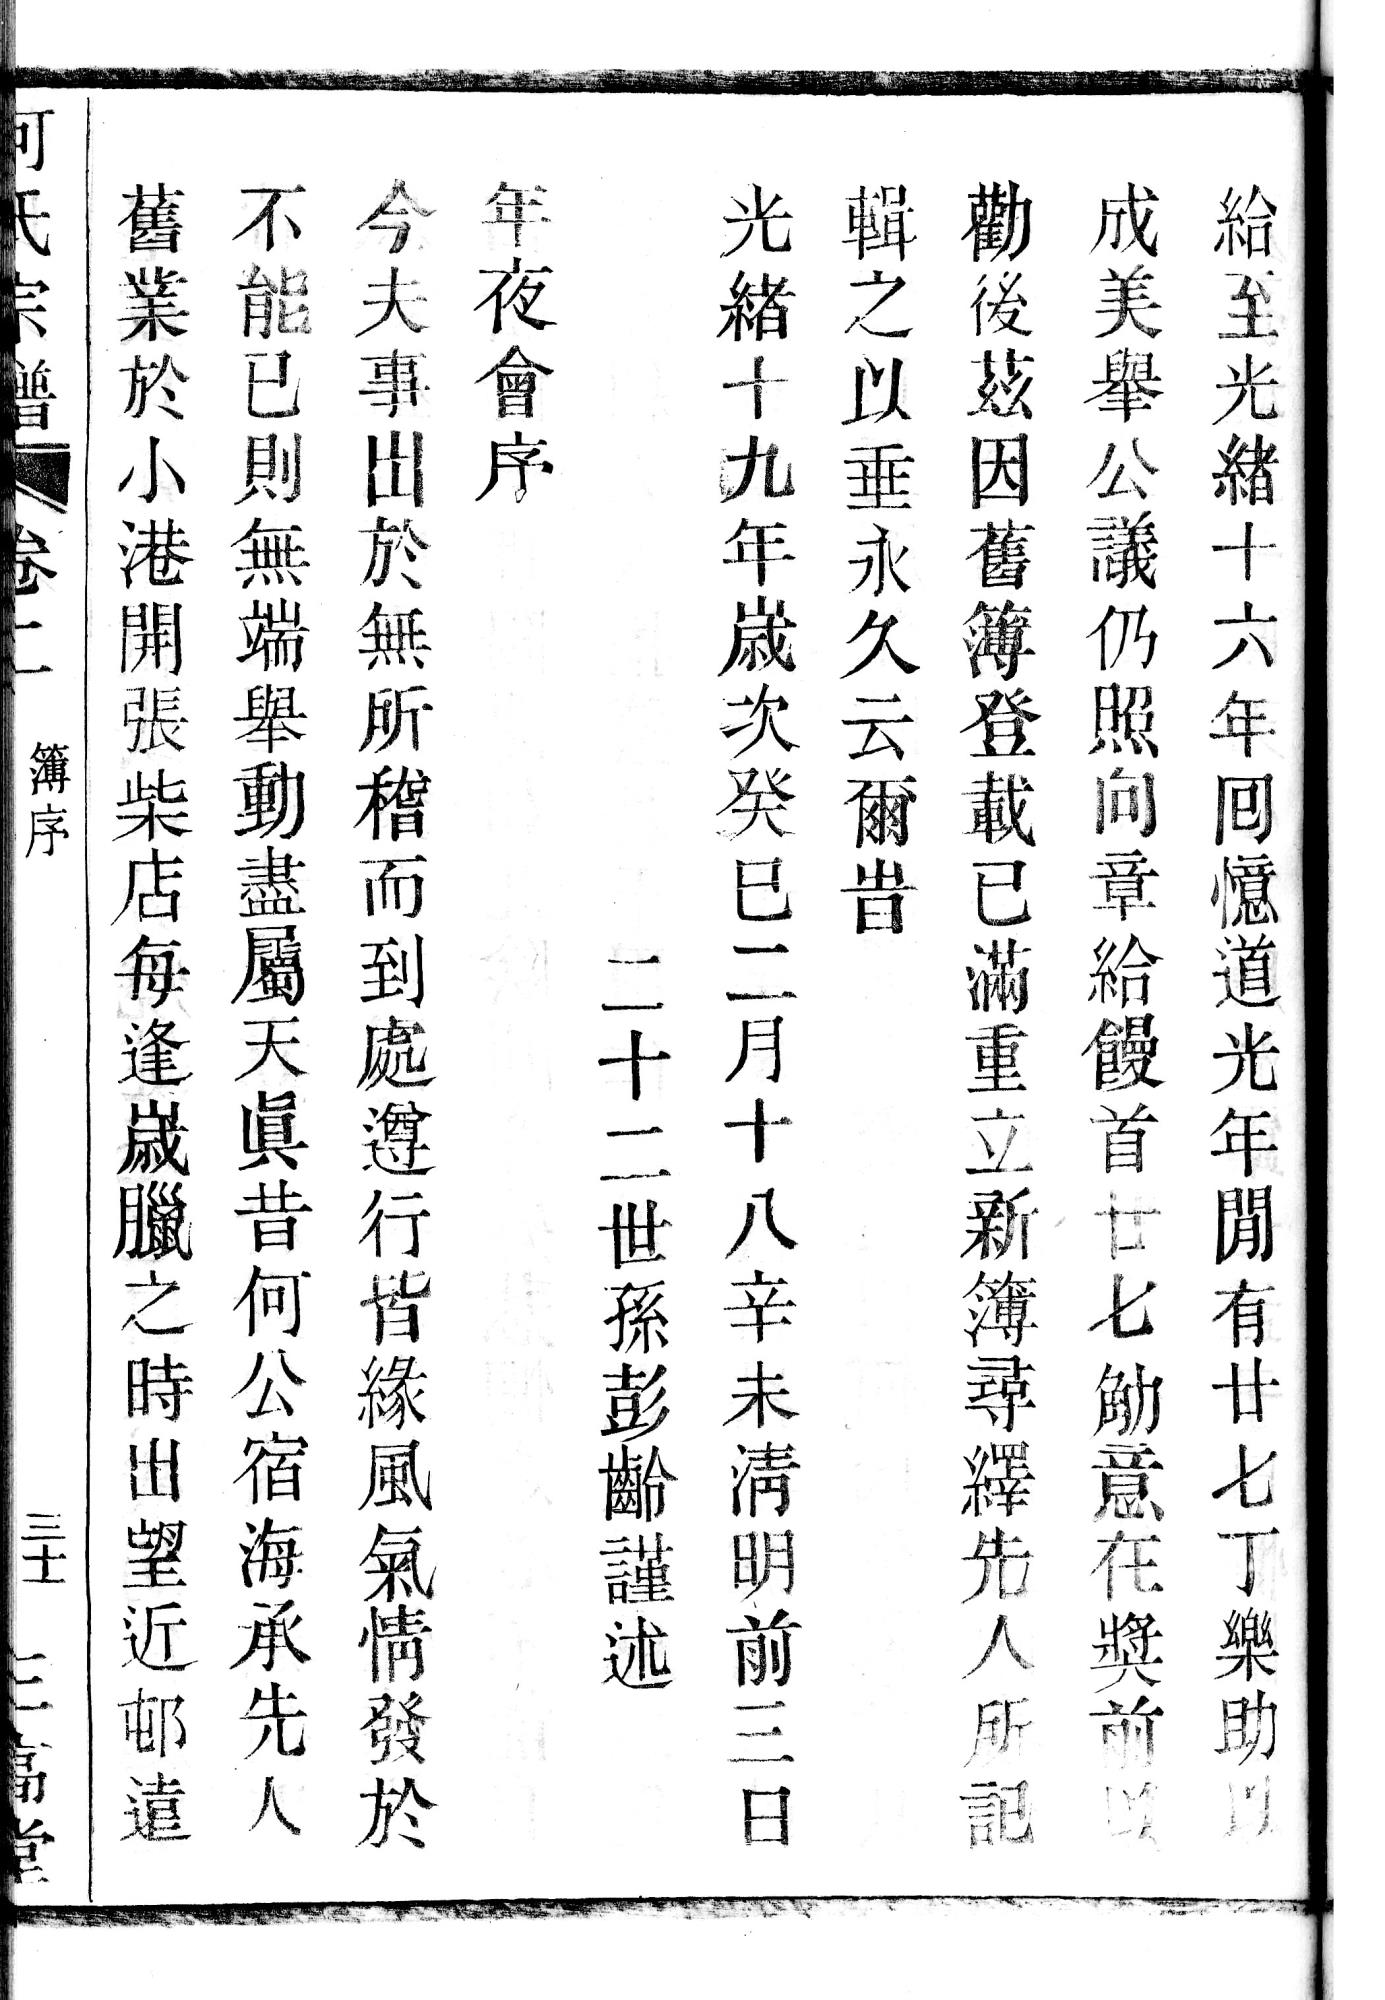 給至光緒十六年囘憶道光年閒有廿七丁樂助以
成美舉公議仍照向章給饅首廿七觔意在獎前以
勸後茲因舊簿登載已滿重立新簿尋繹先人所記
輯之以垂永久云爾旹
光緒十九年歲次癸巳二月十八辛未淸明前三日
二十二世孫彭齡謹述
年夜會序
今夫事出於無所稽而到處遵行皆緣風氣情發於
不能已則無端舉動盡屬天眞昔何公宿海承先人
舊業於小港開張柴店每逢歲臘之時出望近邨遠
何氏宗譜 卷二 簿序 三十 三高堂